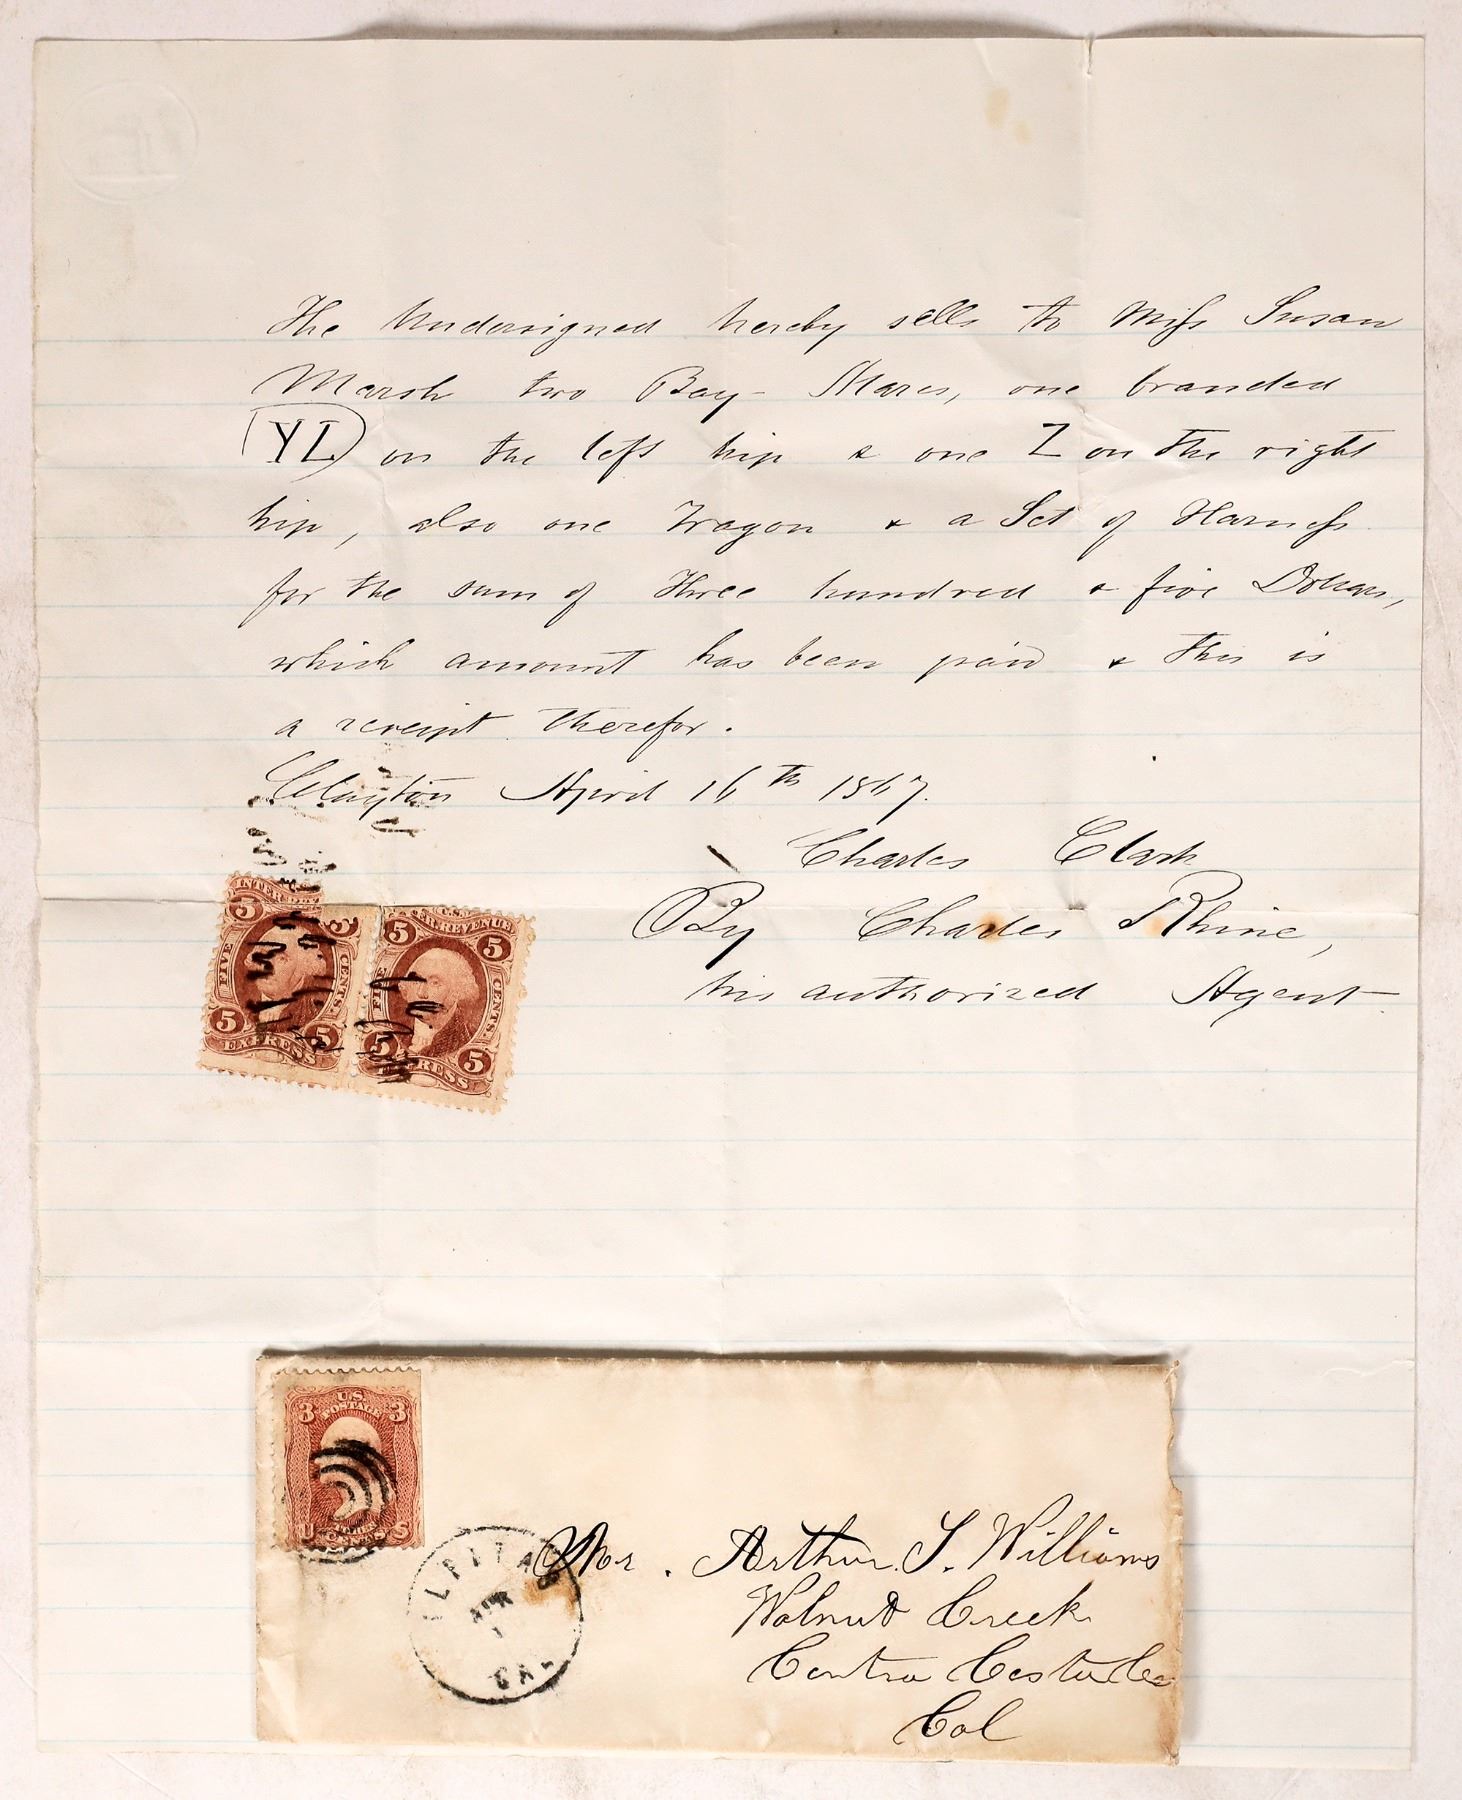 The Undersigned hereby sells to Miss Susan
Marsh two Bay Mares, one branded
YL on the left hip & one Z on the right
hip, also one Wagon & a Set of Harness
for the sum of Three hundred & five Dollars,
which amount has been paid & this is
a receipt therefor.
Clayton April 16th 1867.
Charles Clark
By Charles Rhine,
his authorized Agent
5 INTER
5
FIVE
CENTS.
5 5
EXPRESS
U.S.
5 R. REVENUE 5
FIVE
CENTS.
5 5
EXPRESS
U.S.
3 POSTAGE 3
U S
ILPITAS
APR
CAL
Mr. Arthur S. Williams
Walnut Creek
Contra Costa Co
Cal